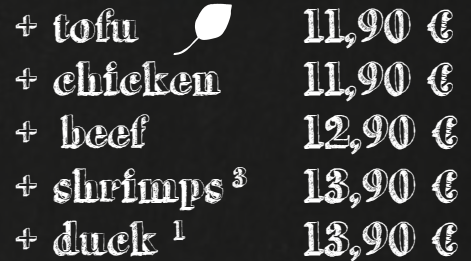 + tofu 11,90 €
+ chicken 11,90 €
+ beef 12,90 €
+ shrimps ³ 13,90 €
+ duck ¹ 13,90 €